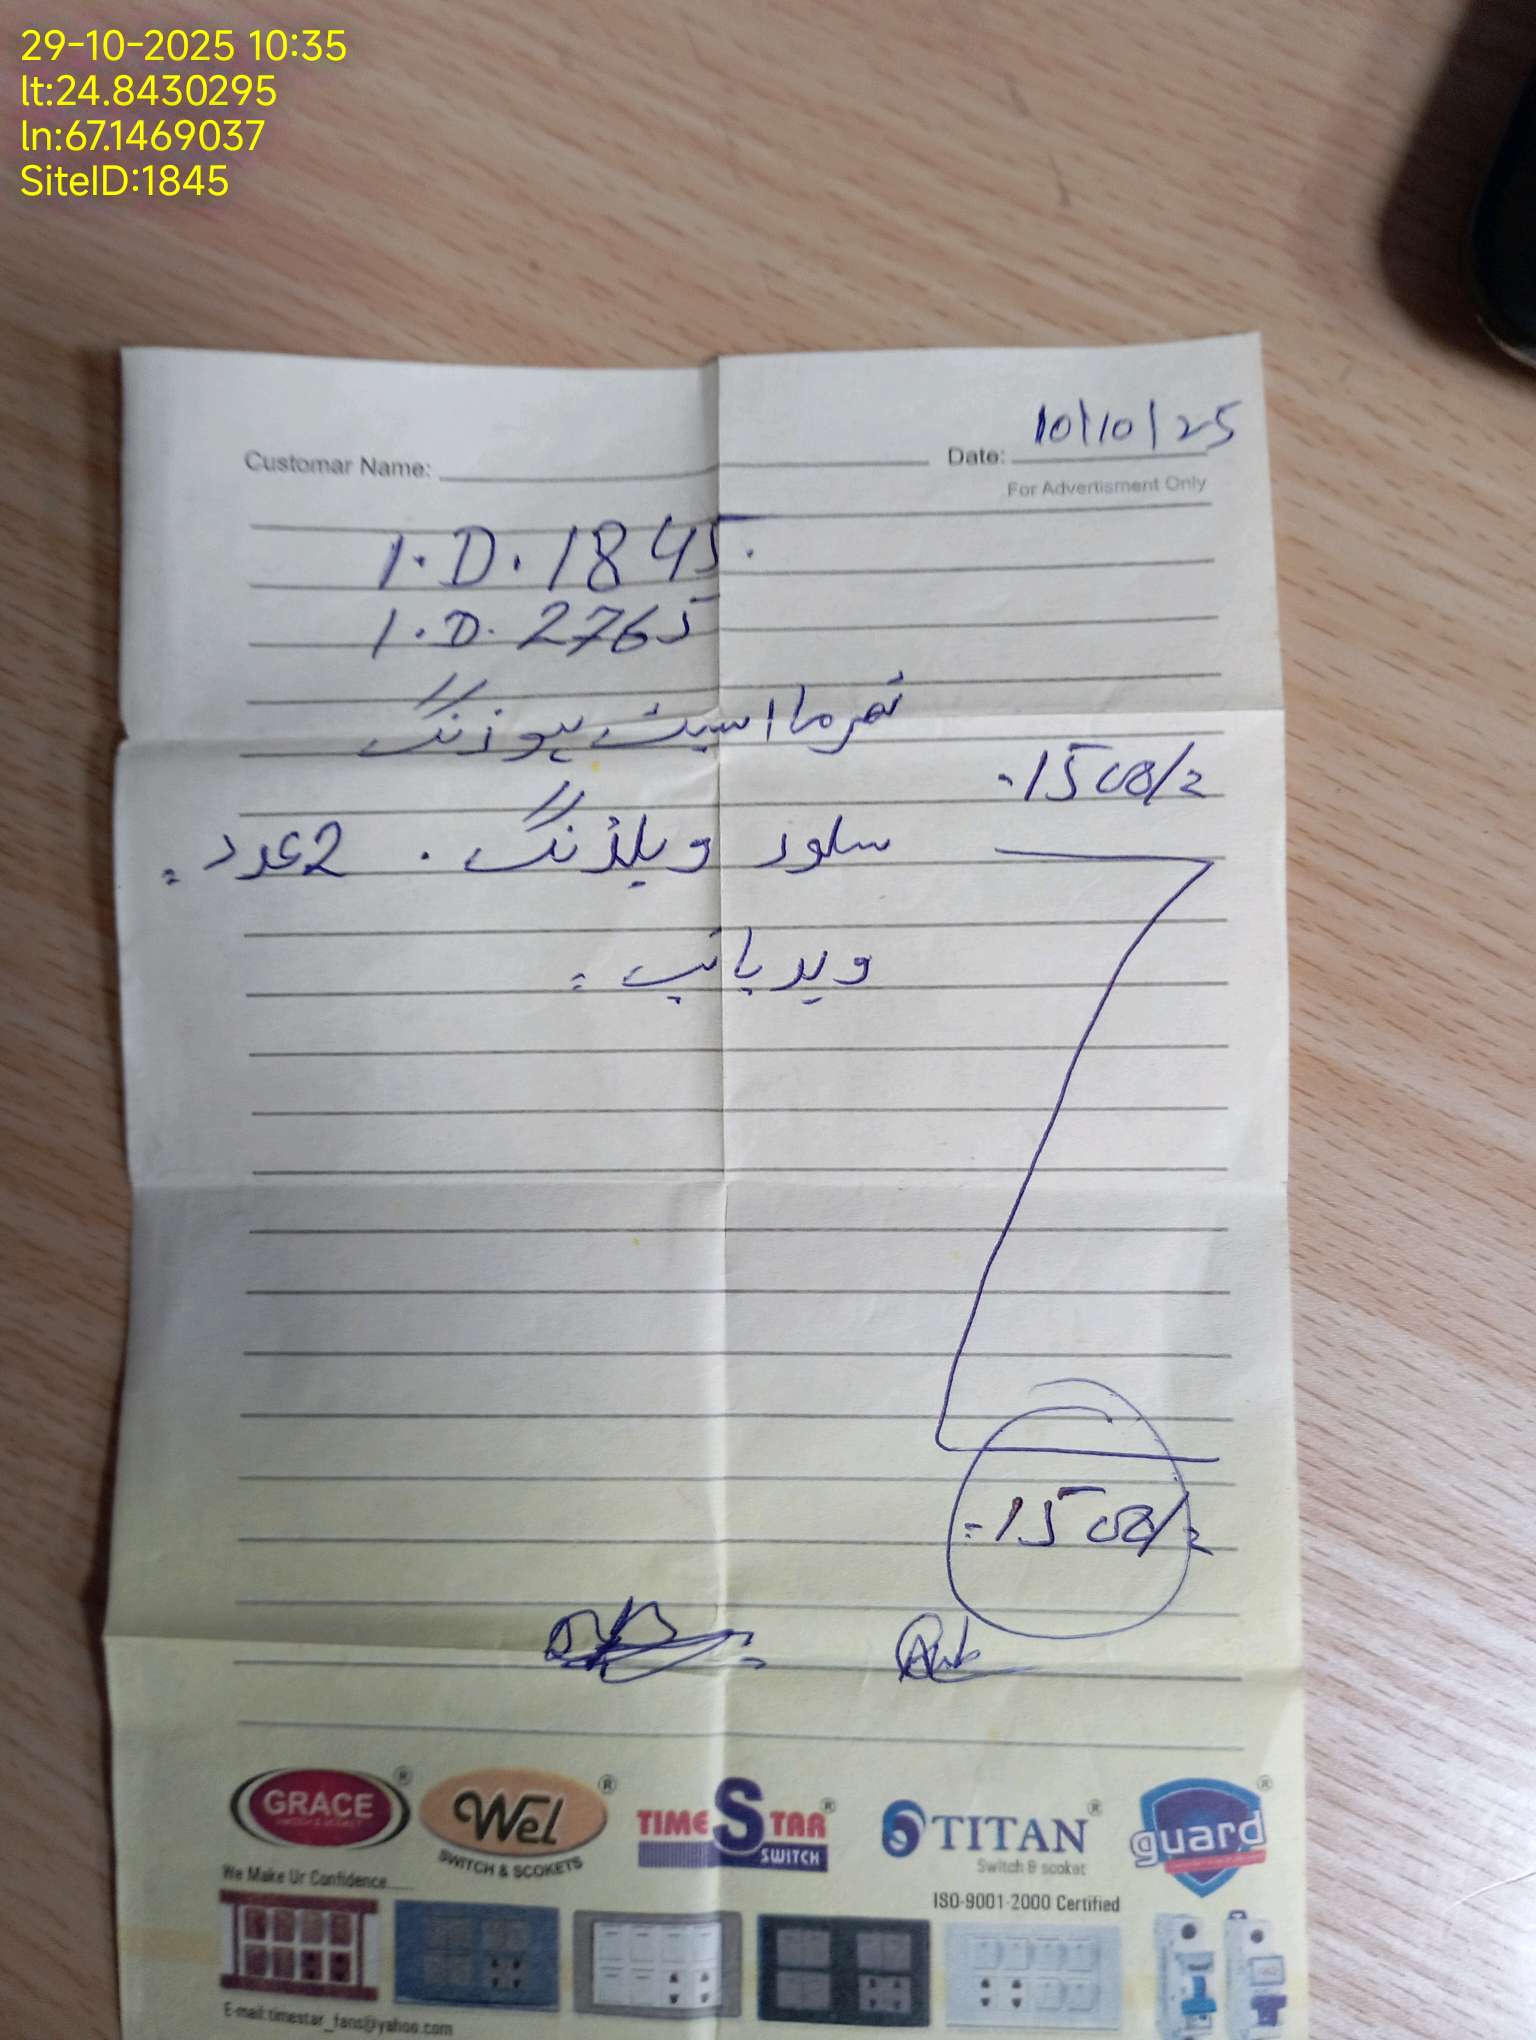 29-10-2025 10:35
lt:24.8430295
ln:67.1469037
SiteID:1845
Customar Name:
Date: 10/10/25
For Advertisment Only
I.D. 1845.
I.D. 2765
تھرما اسیٹ ہوزنگ
1500/=
سلور ویلڈنگ . 2 عدد =
ویر پائپ =
=1500/=
GRACE
Wel
SWITCH & SCOKETS
TIME STAR
SWITCH
TITAN
Switch & scoket
guard
We Make Ur Confidence......
ISO-9001-2000 Certified
E-mail:timestar_fans@yahoo.com